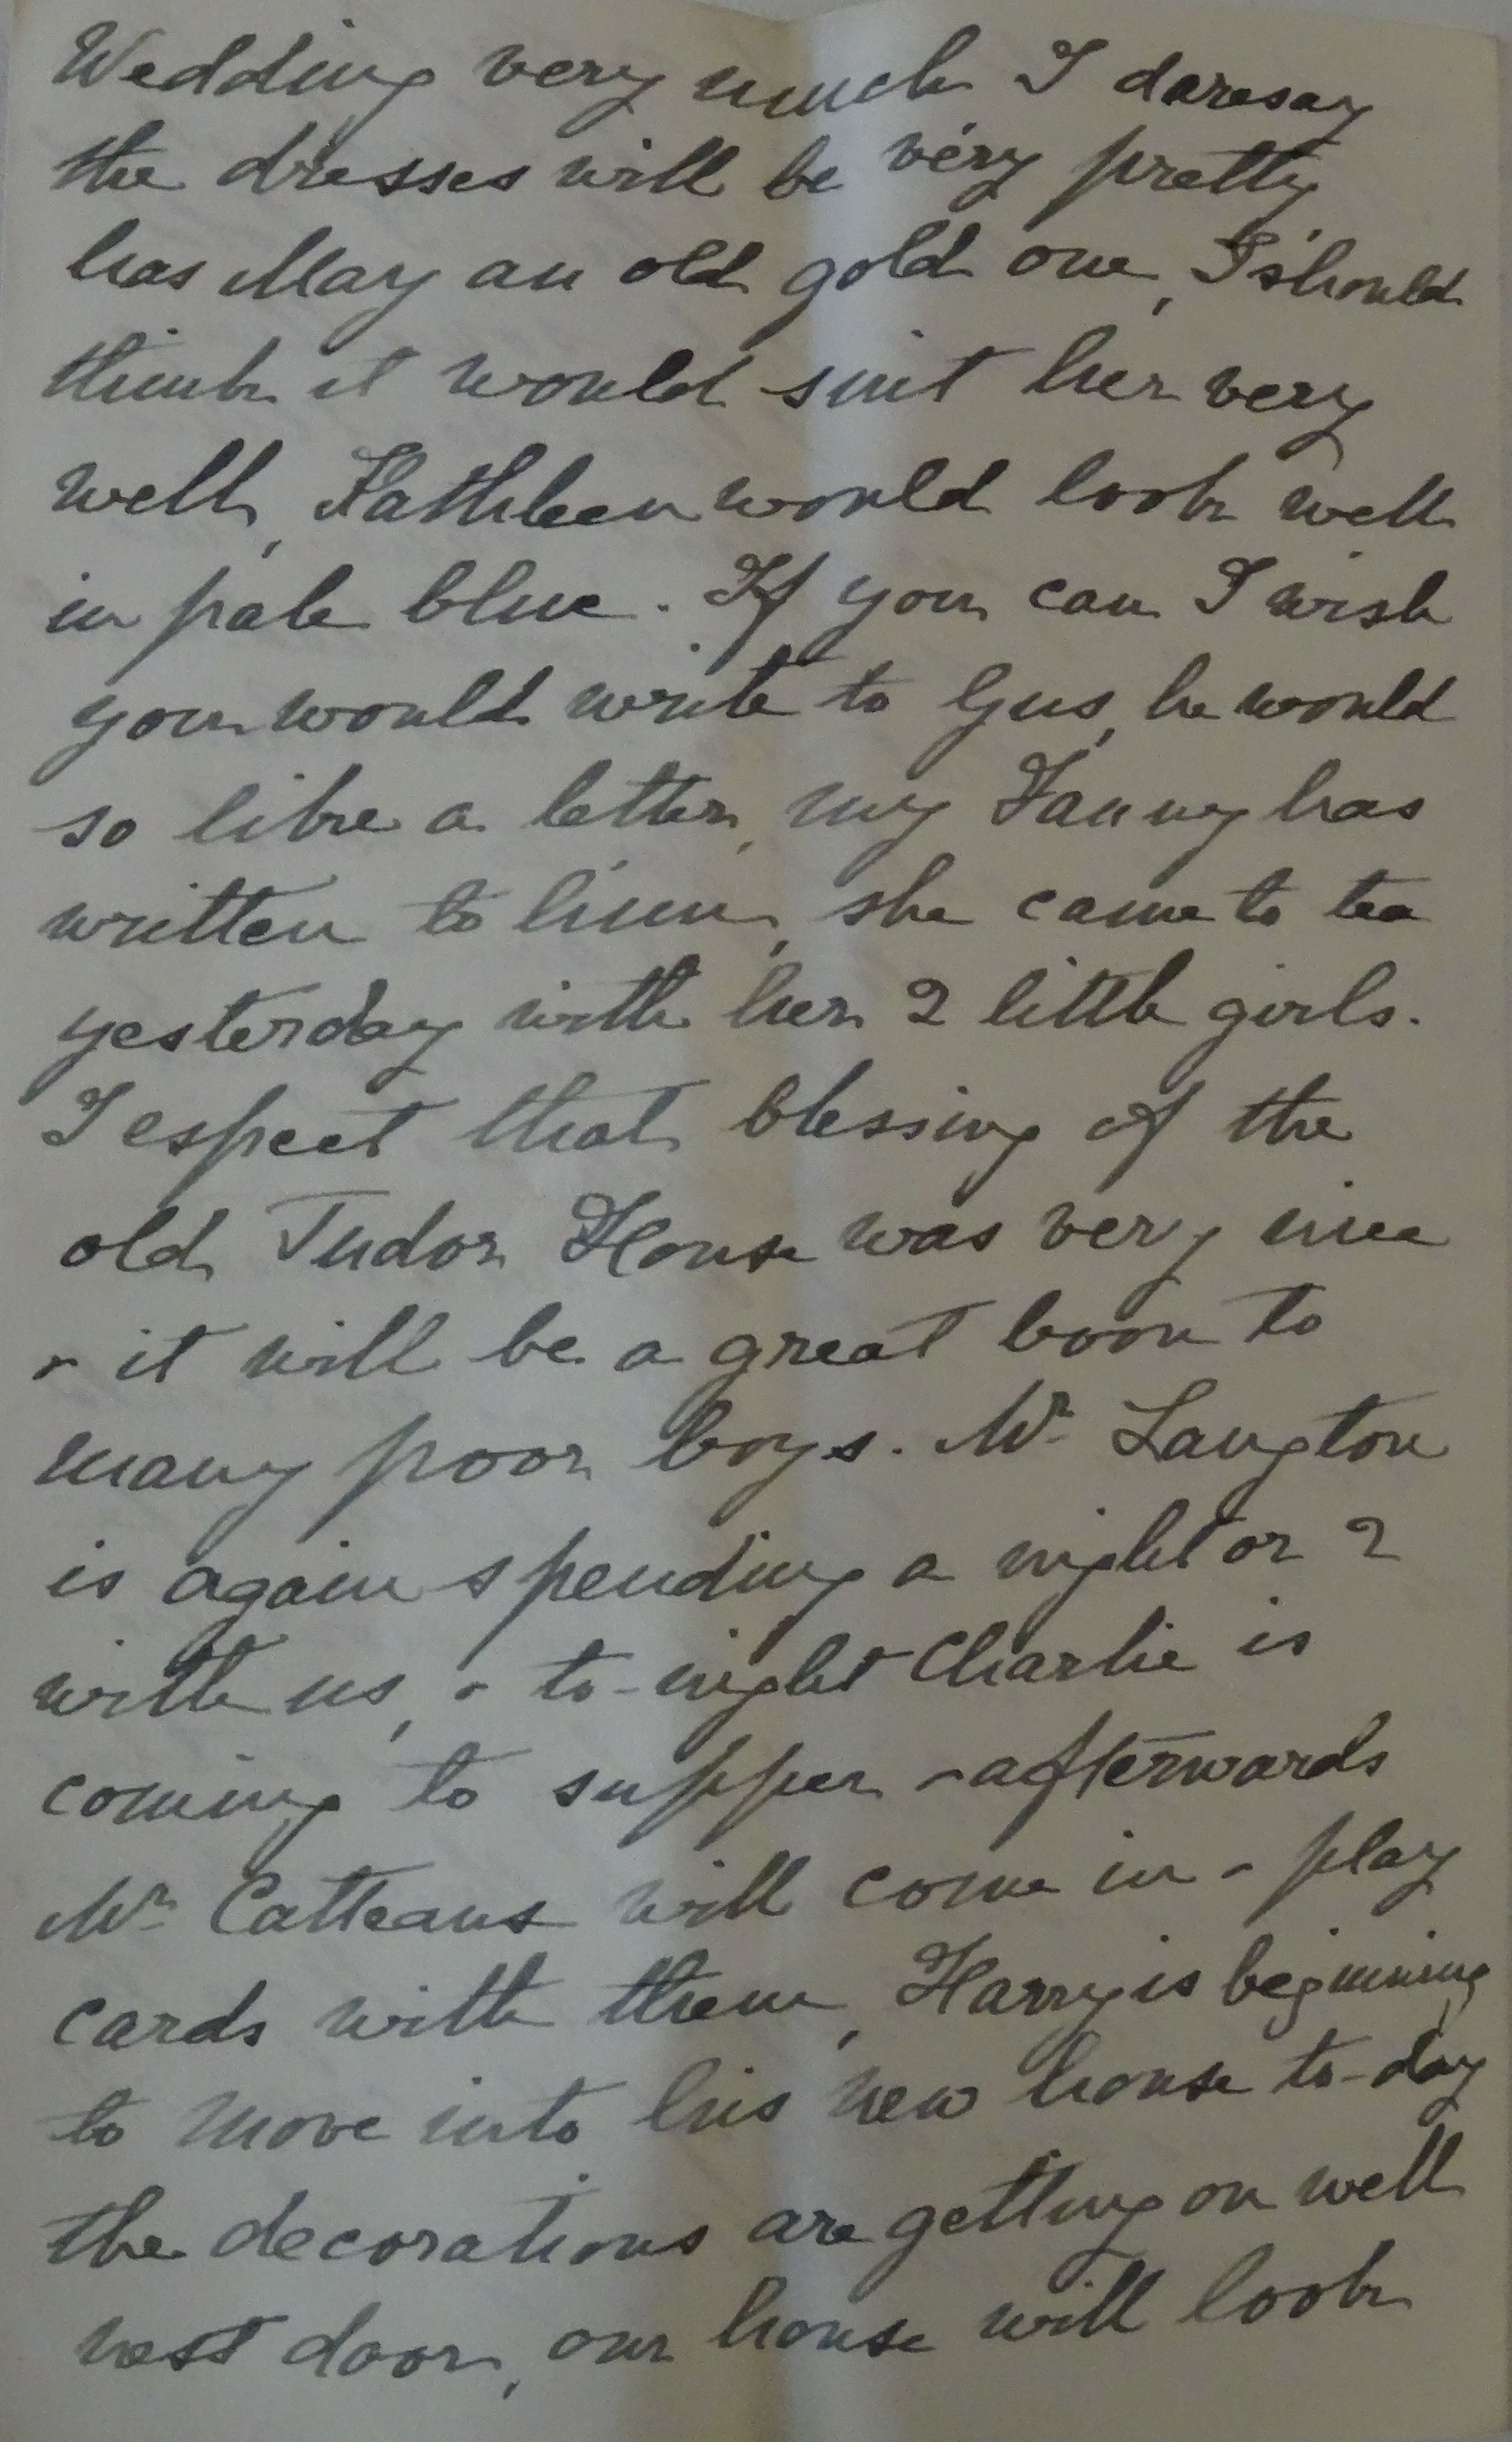 Wedding very much I daresay
the dresses will be very pretty
has May an old gold one, I should
think it would suit her very
well, Kathleen would look well
in pale blue. If you can I wish
you would write to Gus, he would
so like a letter, my Fanny has
written to him, she came to tea
yesterday with her 2 little girls.
I espect that blessing of the
old Tudor House was very nice
& it will be a great boon to
many poor boys. Mr Langton
is again spending a night or 2
with us, & to-night Charlie is
coming to supper & afterwards
Mr Catteaus will come in & play
cards with them, Harry is beginning
to move into his new house to-day
the decorations are getting on well
next door, our house will look